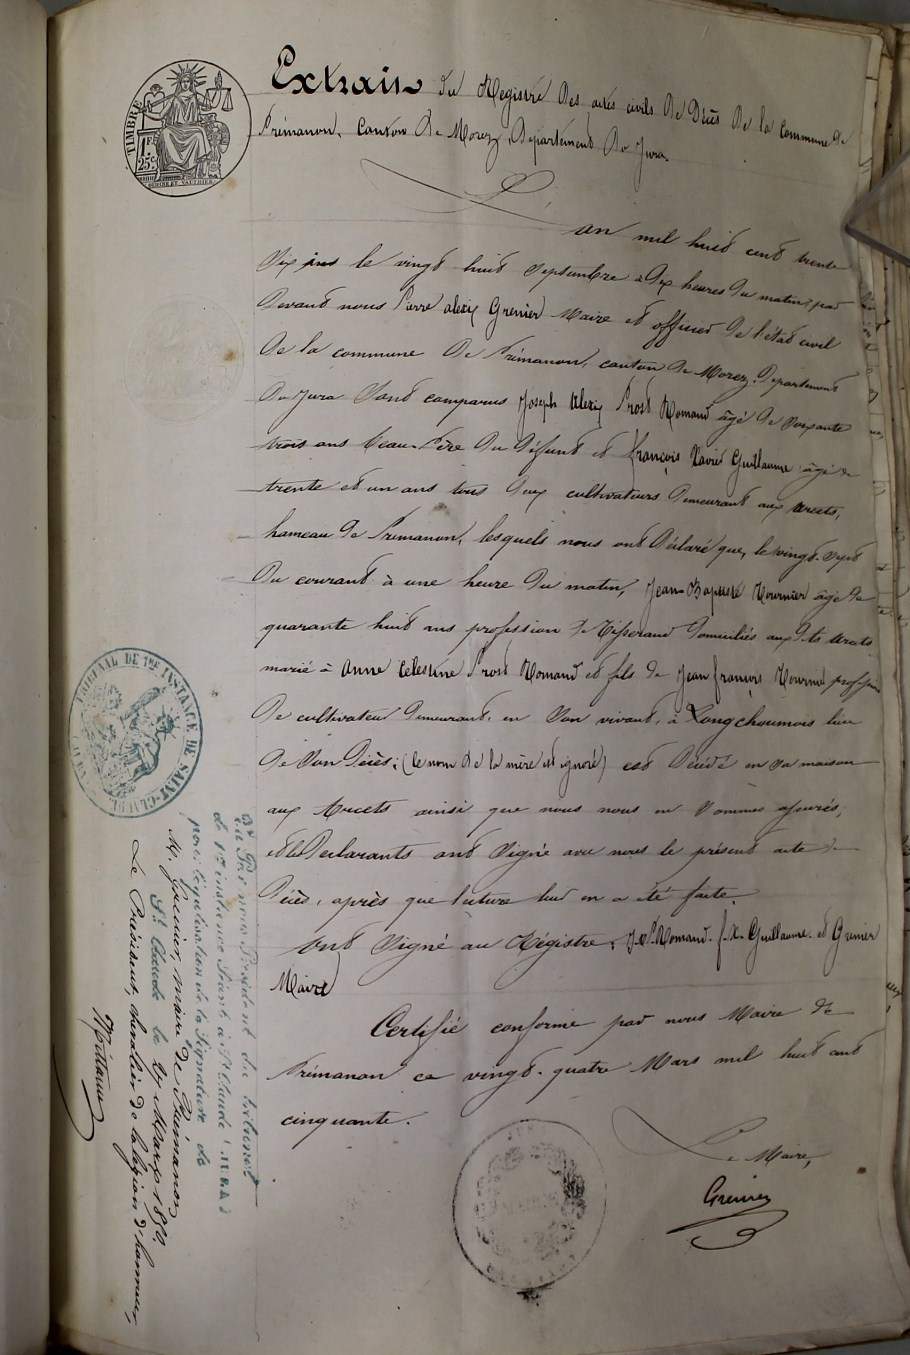 TIMBRE
1 FR
25 C.
Extrait du Régistre des actes civils de Décès de la Commune de
Prémanon, Canton de Morez, Département du Jura.
L'an mil huit cent trente
six le vingt huit Septembre à dix heures du matin, par
devant nous Pierre alexis Grenier Maire et officier de l'état civil
de la commune de Prémanon, canton de Morez, Département
du Jura Sont comparus Joseph Alexis Prost Romand âgé de Soixante
trois ans beau-Père du défunt et François Xavier Guillaume âgé de
trente et un ans tous deux cultivateurs demeurant aux arcets,
hameau de Prémanon, lesquels nous ont déclaré que, le vingt-Sept
du courant à une heure du matin, Jean-Baptiste Tournier âgé de
quarante huit ans profession de Tisserand domiciliés aux dits arcets
marié à Anne Célestine Prost Romand et fils de Jean françois Tournier profession
de cultivateur demeurant, en Son vivant, à Longchaumois lieu
de Son Décès; (le nom de la mère est ignoré) est Décédé en sa maison
aux Arcets ainsi que nous nous en Sommes assurés,
et les Déclarants ont Signé avec nous le présent acte de
Décès, après que lecture leur en a été faite.
Ont Signé au Régistre, J.A.P. Romand. f. X. Guillaume. et Grenier
Maire
Certifié conforme par nous Maire de
Prémanon ce vingt-quatre Mars mil huit cent
cinquante.
Le Maire,
Grenier
TRIBUNAL DE 1RE INSTANCE DE SAINT-CLAUDE
Vu Par nous Président du tribunal
de 1re instance Séant à St Claude (JURA)
pour légalisation de la Signature de
M. Grenier, maire de Prémanon
St Claude le 27 Mars 1850
Le Président, chevalier de la légion d'honneur,